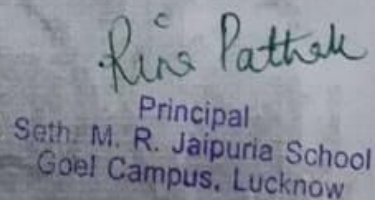 Rina Pathak
Principal
Seth. M. R. Jaipuria School
Goel Campus, Lucknow